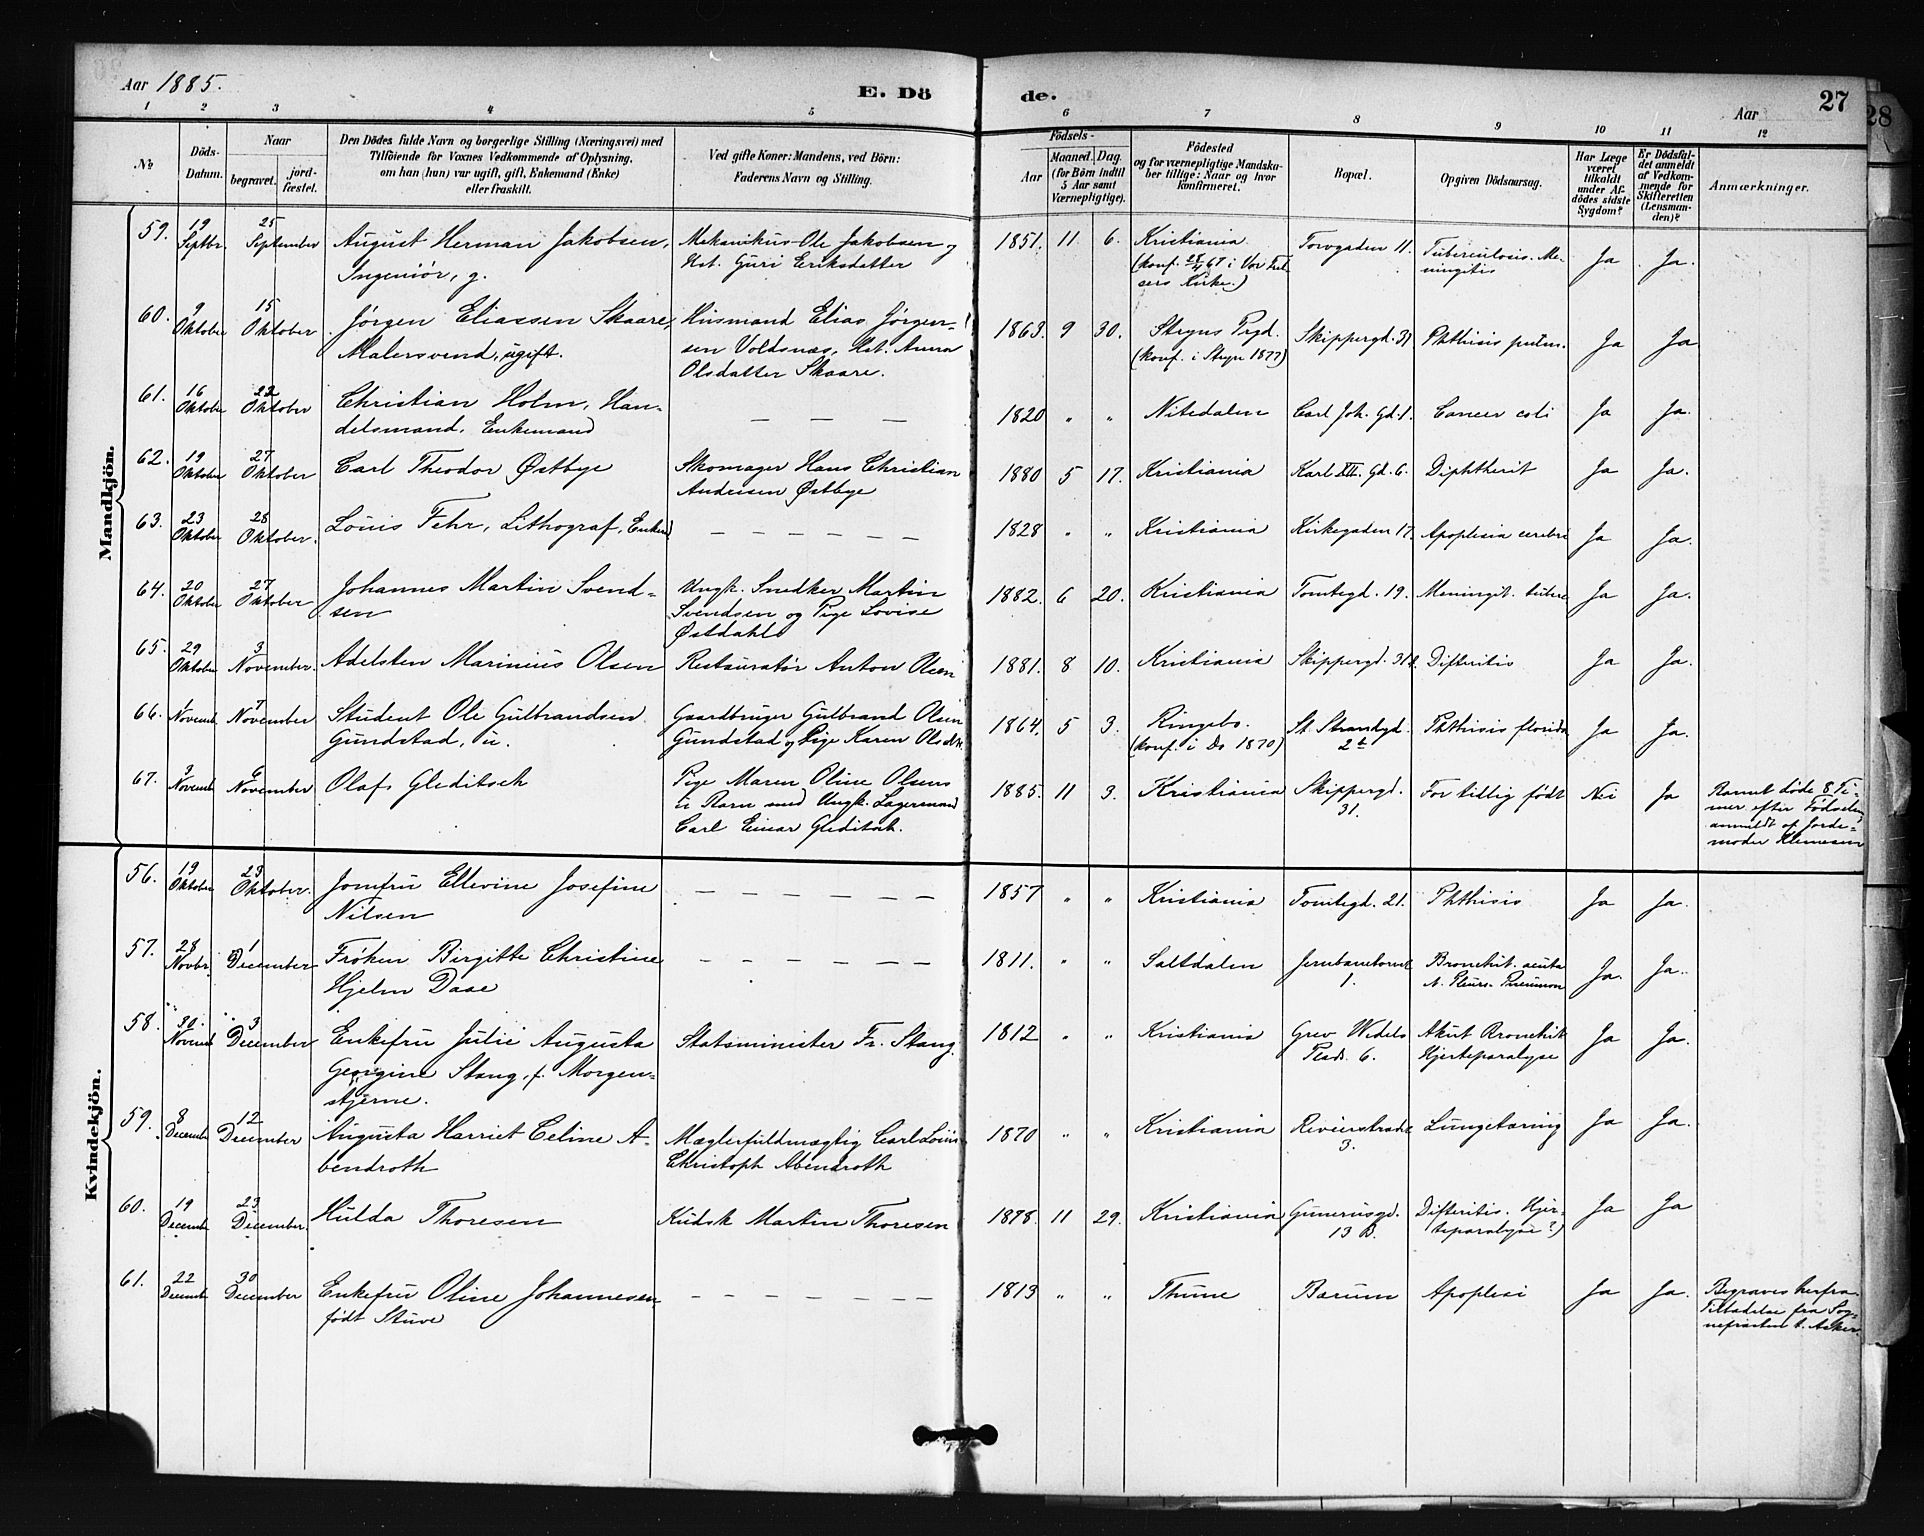 Aar 1885.
E. Dö
de.
Aar
27
28
1 2 3 4 5 6 7 8 9 10 11 12
No
Döds-
Datum.
Naar
begravet.
jord-
fæstet.
Den Dödes fulde Navn og borgerlige Stilling (Næringsvei) med
Tilföiende for Voxnes Vedkommende af Oplysning,
om han (hun) var ugift, gift, Enkemand (Enke)
eller fraskilt.
Ved gifte Koner: Mandens, ved Börn:
Faderens Navn og Stilling.
Födsels-
Aar
Maaned. Dag.
(for Börn indtil
5 Aar samt
Værnepligtige).
Födested
og for værnepligtige Mandska-
ber tillige: Naar og hvor
konfirmeret.
Bopæl.
Opgiven Dödsaarsag.
Har Læge
været
tilkaldt
under Af-
dödes sidste
Sygdom?
Er Dödsfal-
det anmeldt
af Vedkom-
mende for
Skifteretten
(Lensman-
den)?
Anmærkninger.
Mandkjön.
59. 19 Septbr. 25 September August Herman Jakobsen, Mekanikus Ole Jakobsen og 1851. 11 6. Kristiania Torvgaden 11. Tuberculosis. Me- Ja Ja.
Ingeniör, g. Hst. Guri Eriksdatter (konf. 28/4 67 i Vor Frel- ningitis
sers Kirke.)
60. 9 Oktober 15 Oktober Jørgen Eliassen Skaare, Husmand Elias Jørgen- 1863. 9 30. Stryns Prgd. Skippergd. 31 Phthisis pulm. Ja Ja
Malersvend, ugift. sen Voldsnæs, Hst. Anna (konf. i Stryn 1877)
Olsdatter Skaare.
61. 16 Oktober 22 Oktober Christian Holm, Han- — — — 1820 " " Nitedalen Carl Joh. Gd. 1. Cancer coli Ja Ja.
delsmand, Enkemand
62. 19 Oktober 27 Oktober Carl Theodor Østbye Skomager Hans Christian 1880 5 17. Kristiania Karl XII. Gd. 6. Diphtherit Ja Ja.
Andresen Østbye
63. 23 Oktober 28 Oktober. Louis Fehr, Lithograf, Enkem — — — — — — 1828 " " Kristiania Kirkegaden 17. Apoplexia cerebri Ja Ja.
64. 20 Oktober 27 Oktober Johannes Martin Svend- Ungk. Snedker Martin 1882. 6 20. Kristiania Tomtegd. 19. Meningit. Ja Ja.
sen Svendsen og Pige Lovise
Østdahl
65. 29 Oktober 3 November. Adelsten Marinius Olsen Restauratør Anton Olsen 1881. 8 10. Kristiania Skippergd. Difteritis Ja Ja.
66. 1 Novemb. 7 November Student Ole Gulbrandsen Gaardbruger Gulbrand Olsen 1864. 5 3. Ringebo. St. Strandgd. Phthisis florida Ja Ja.
Gundstad, u. Gundstad og Pige Karen Olsdtr. (konf. i Do 1870)
67. 3 Novemb 6 November Olaf Gleditsch Pige Maren Oline Olsens 1885. 11 3. Kristiania Skippergd. For tidlig født Nei Ja Barnet døde 8 Ti-
u. Barn med Ungk. Lagermand 31. mer efter Fødselen
Carl Einar Gleditsch. anmeldt af Jorde-
moder Klemesen
Kvindekjön.
56. 19 Oktober 23 Oktober. Jomfru Ellevine Josefine — — — — — — 1857 " " Kristiania Tomtegd. 21. Phthisis Ja Ja.
Nilsen
57. 28 Novbr. 1 December Frøken Birgitte Christine — — — — — — 1811. " " Saltdalen Jernbanetorvet Bronchit. acuta Ja. Ja.
Hjelm Daae 1.
58. 30. Novemb 3 December Enkefru Julie Augusta Statsminister Fr. Stang. 1812 " " Kristiania Grev Wedels Akut Bronchit Ja Ja.
Georgine Stang, f. Morgen- Plads. 6. Hjerteparalyse
stjerne.
59. 8 Decemb 12 December Augusta Harriet Celine A- Mæglerfuldmægtig Carl Louis 1870 " " Kristiania Revierstrædet Lungetæring Ja Ja.
bendroth Christoph Abendroth 3.
60. 19 Decemb 23 December. Hulda Thoresen Kudsk Martin Thoresen 1878. 11 29. Kristiania Gunerusgd. Difteritis. Hjer- Ja Ja
13 B. teparalyse?)
61. 22 Decemb 30 December Enkefru Oline Johannesen — — — — — — 1813 " " Thune Bærum Apoplexi Ja Ja. Begraves herfra.
født Stuve Tilladelse fra Sog-
nepræsten t. Asker.